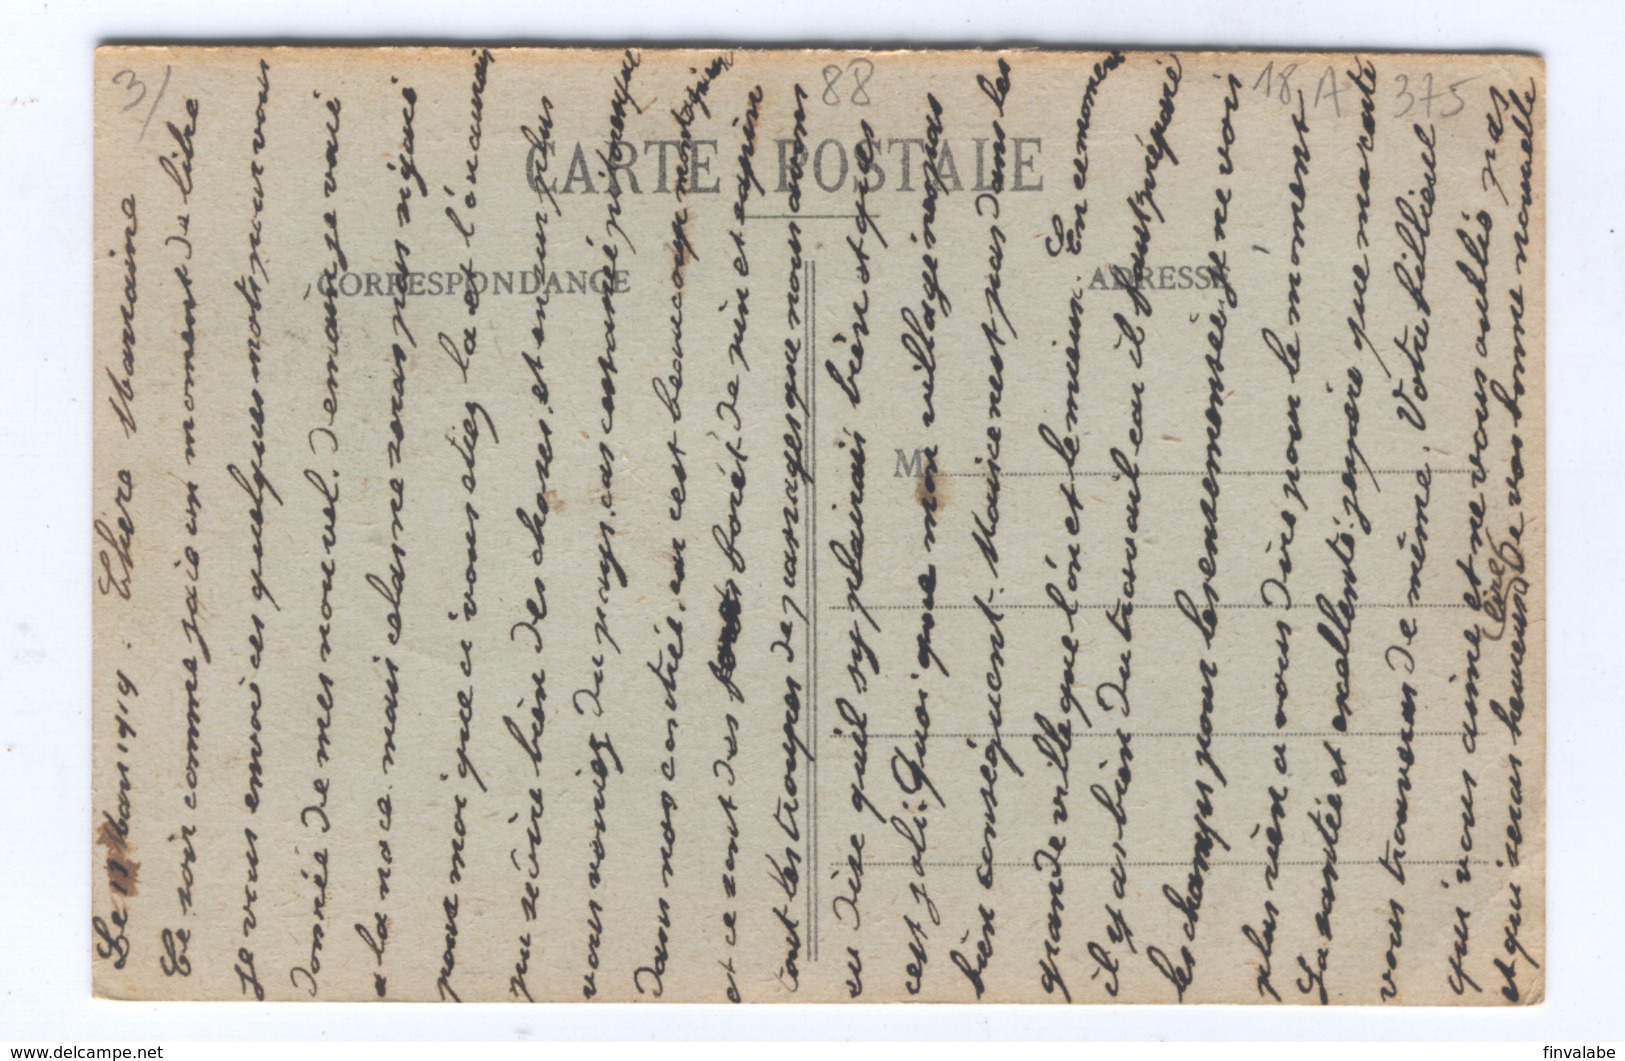 3/
88
18 A 375
CARTE POSTALE
CORRESPONDANCE
ADRESSE
M
Le 15 Mars 1919 : Chère Marraine
Ce soir comme jaie un moment de libre
je vous envoi ces quelques mots pour vous
donnée de mes nouvel. demain je vaie
a la noce. mais cela ne vous pas rigue
pour moi que ci vous etiez la et l'eu aurais
pu dire bien des choses, et encor plus
vous voriez du pays. cas cest année pitoresque
dans nos contrée. car cest beaucoup montagneux
et ce sont des forét de pin et sapin
tout les troupes de passages que nous avons
su dise qu'el sy plairais bien et ques
cest joli. Quoi que mon village nes pas
bien conséquent. Maire nest pas dans les
grande ville que l'on et le mieux. En ce moment
il y as bien du travail car il faut préparé
les champs pour les ensemensée je ne vois
plus rien a vous dire pour le moment
La santée et excellente jespère que ma carte
vous trouveras de même. Votre filleul
qui vous aime et ne vous oublie pas
et qui seras heureux (lire) de vos bonne nouvelle
finvalabe